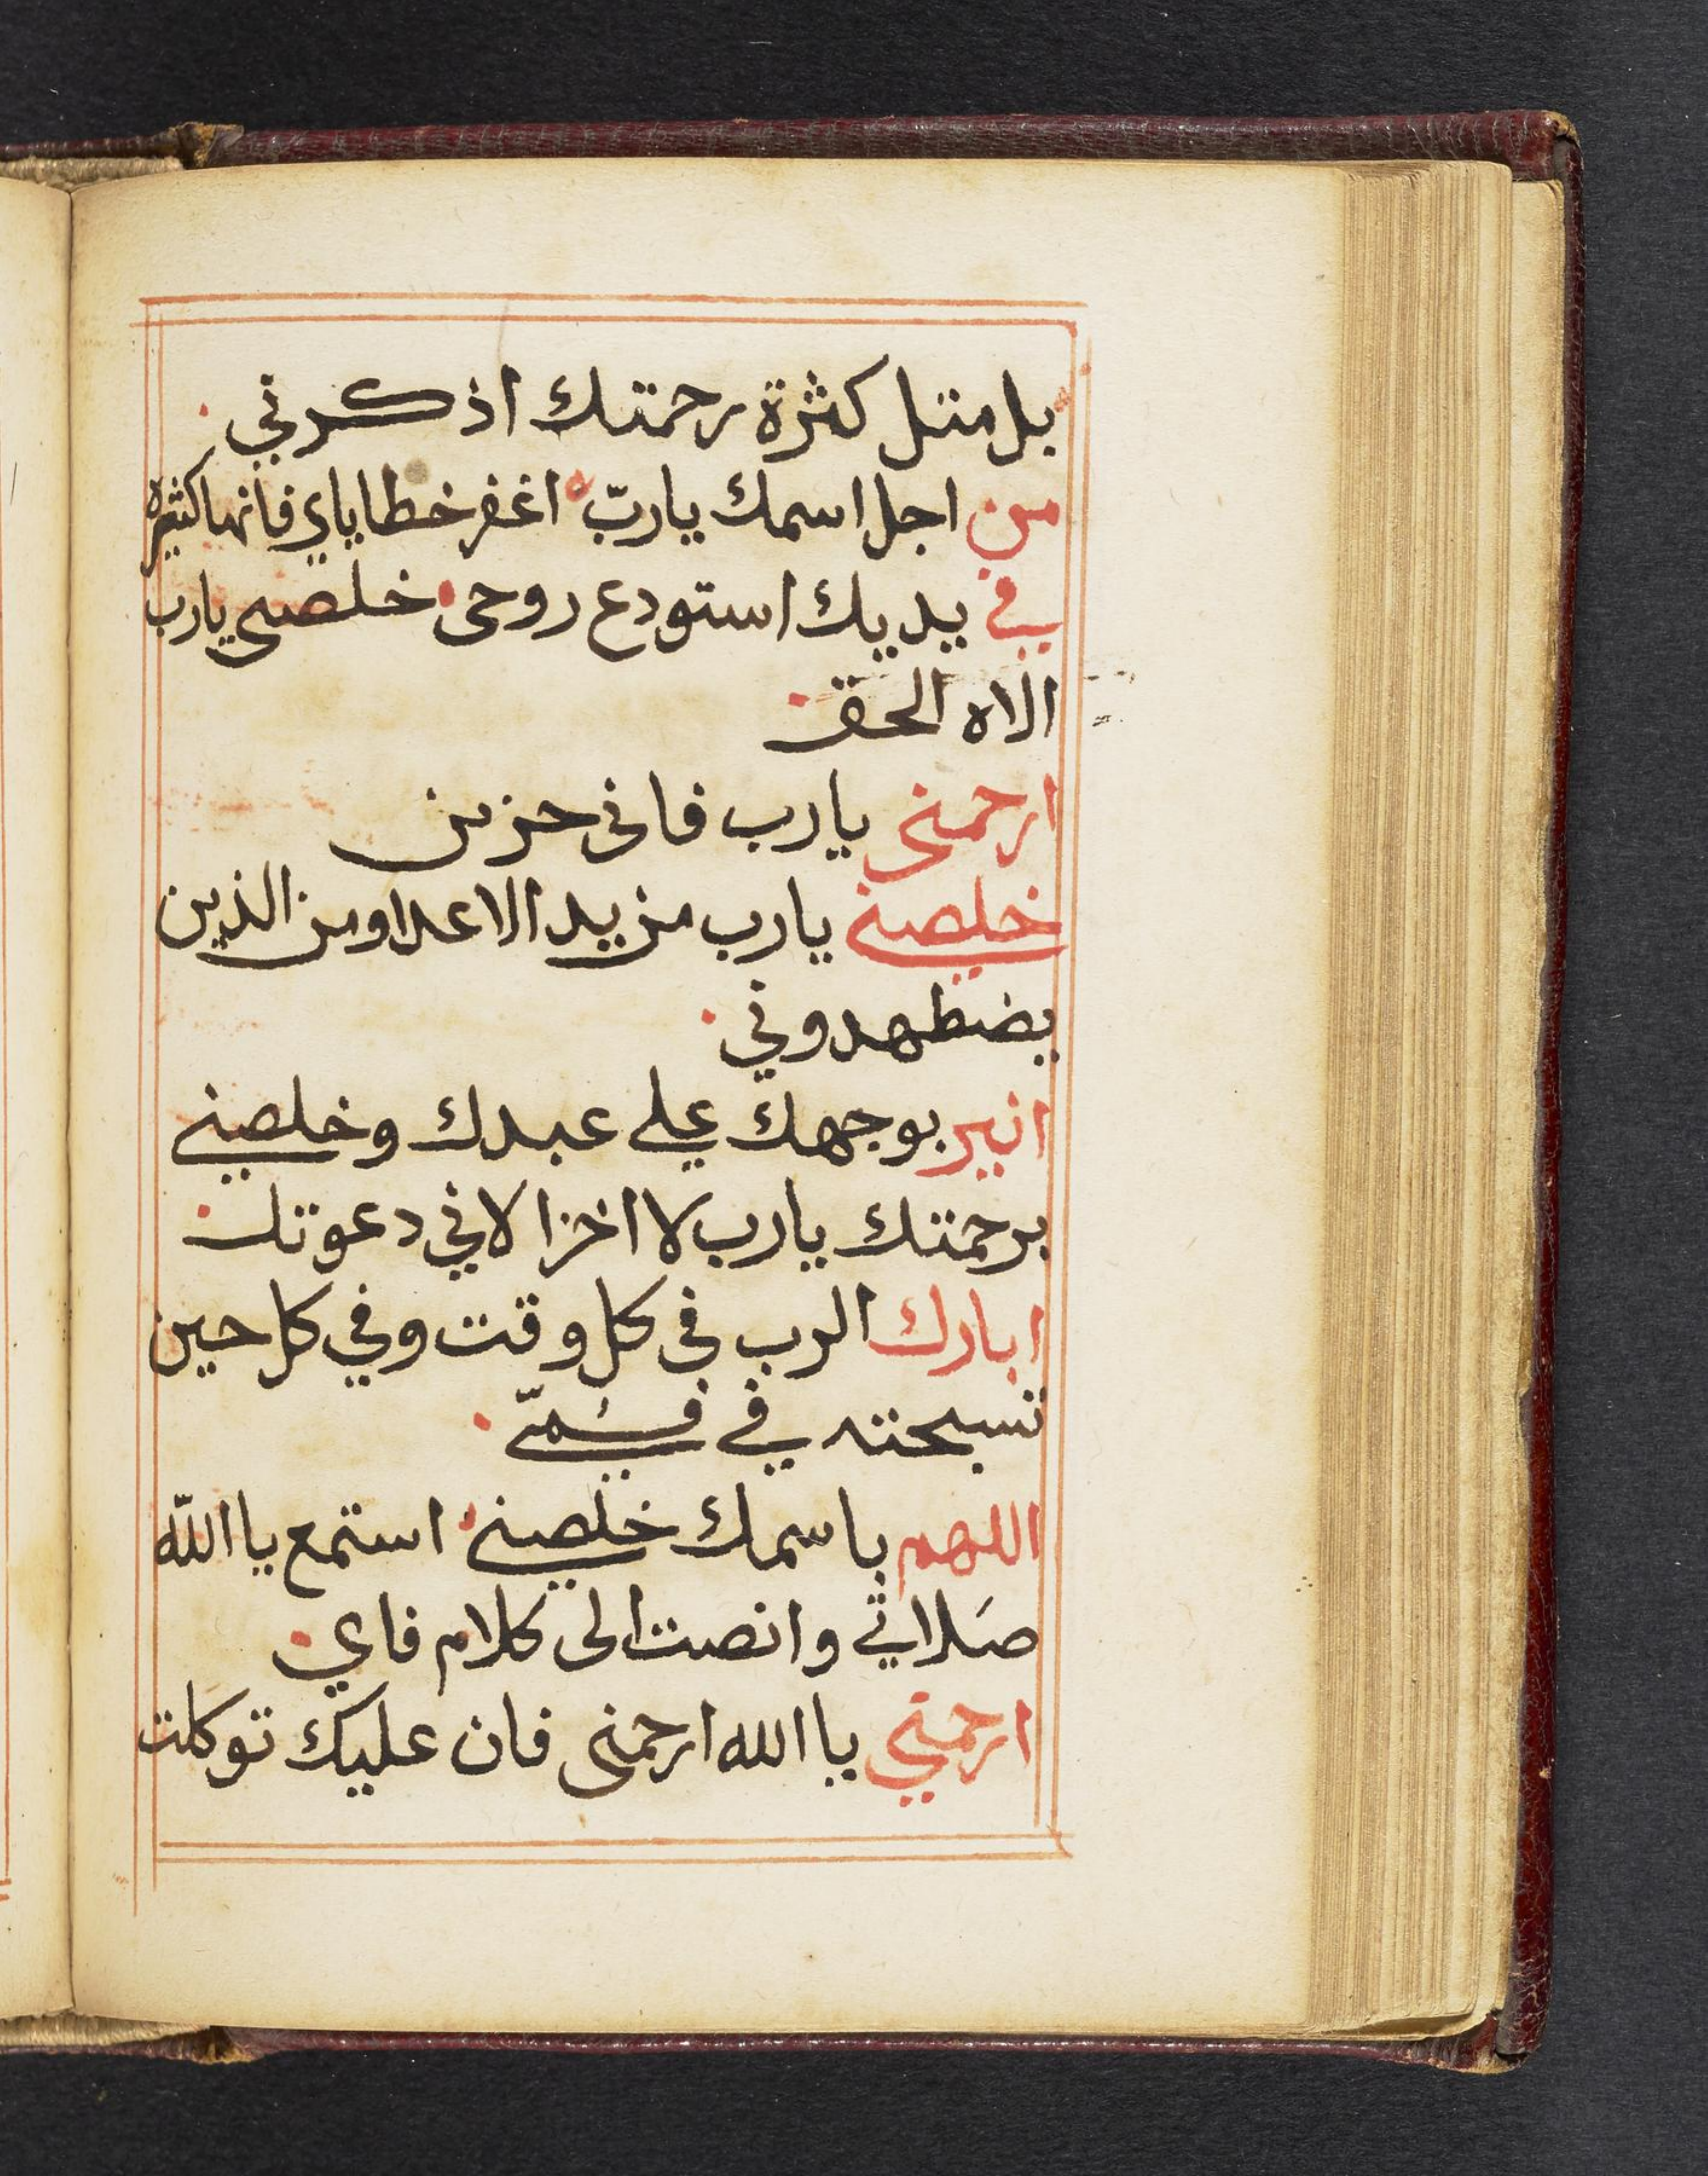 بل متل كثرة رحمتك اذكرني
من اجل اسمك يا ربّ اغفر خطاياي فانها كثيره
في يديك استودع روحى خلصى يارب
الاه الحق
ارحمنى يا رب فانى حزين
خلصني يا رب من يد الاعدا ومن الذين
يضطهدوني
انير بوجهك علي عبدك وخلصني
برحمتك يا رب لا اخزا لاني دعوتك
ابارك الرب فى كل وقت وفي كل حين
تسبحته في فمّي
اللهم باسمك خلصني استمع يا اللّه
صَلاتي وانصت الى كلام فاي
ارحمني يا الله ارحمنى فان عليك توكلت